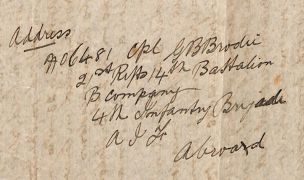 Address
A06481 Cpl G B Brodie
21st Rfts 14th Bastalion
B company
4th Infantry Brigade
A I F
Abroard